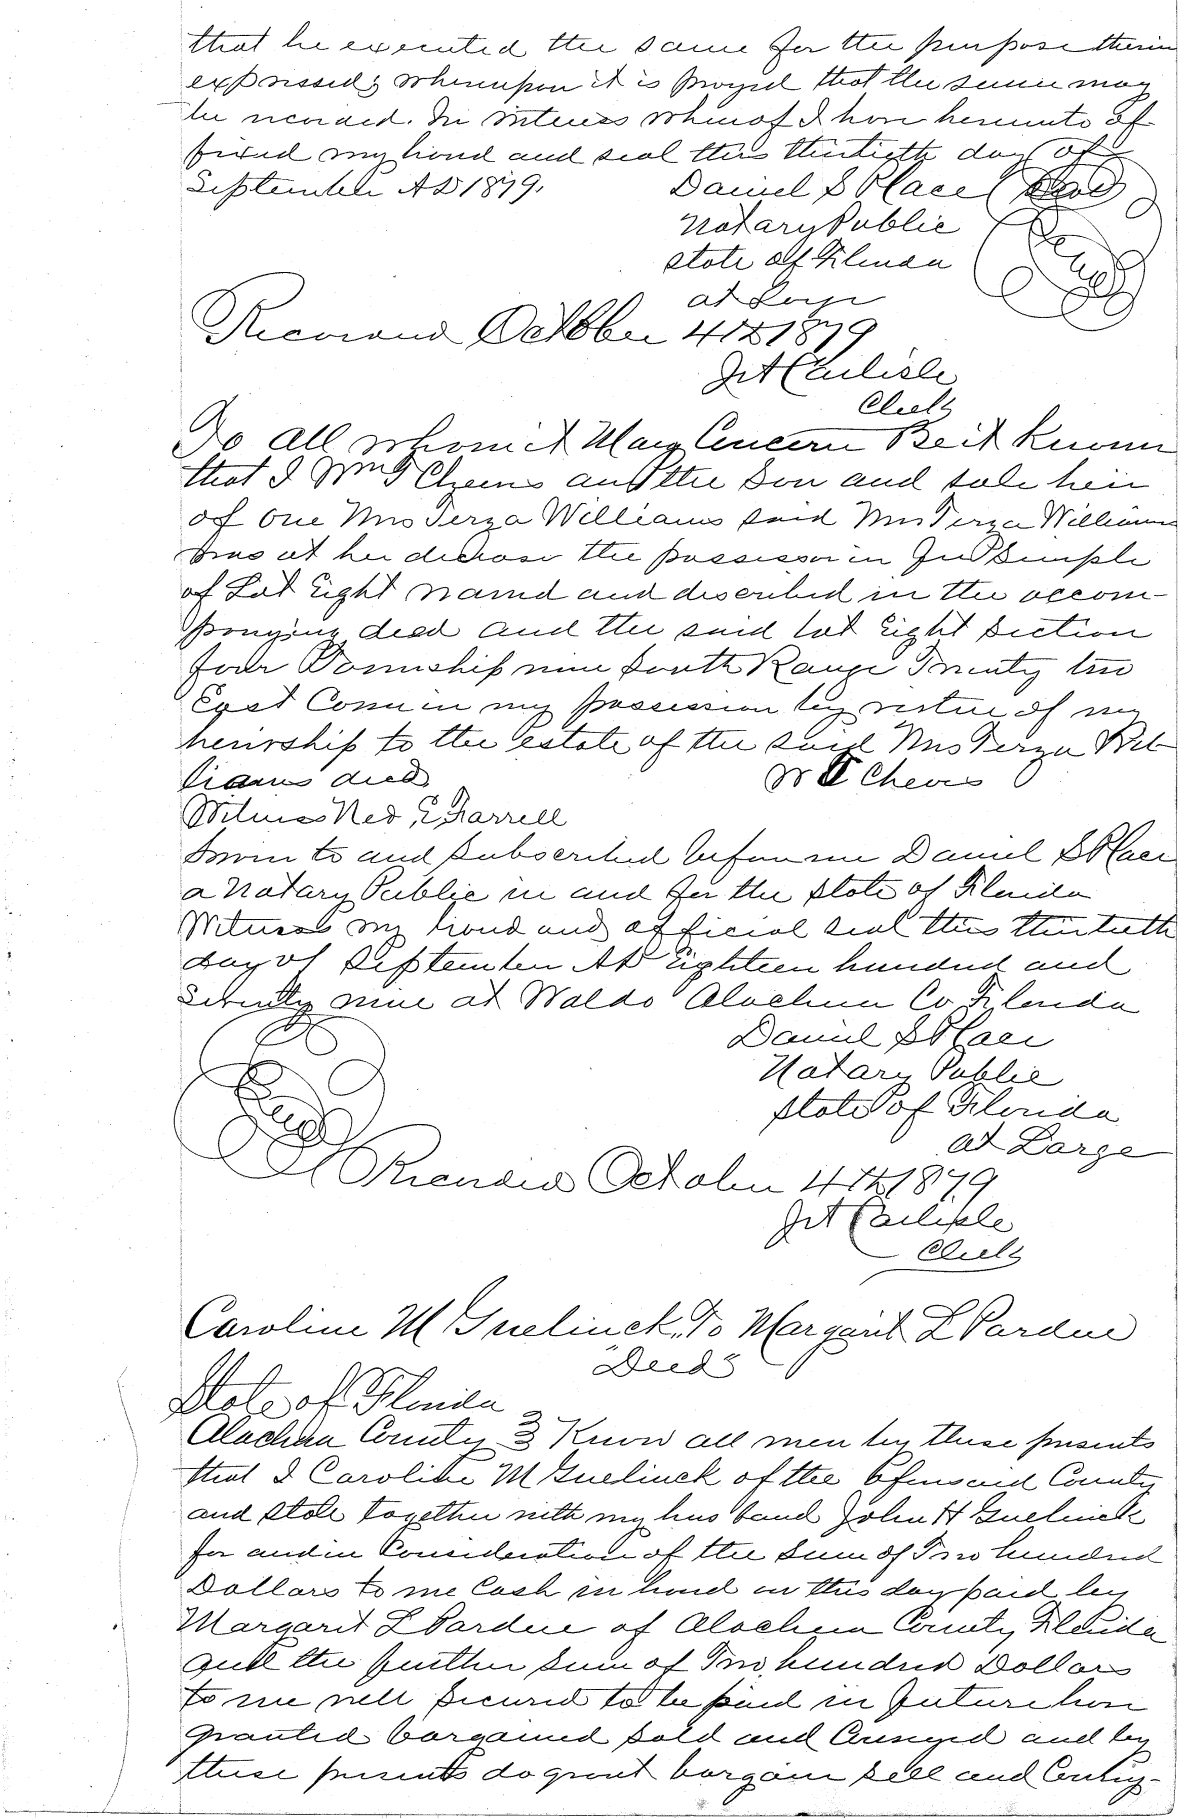 that he executed the same for the purpose therin
expressed; whereupon it is prayed that the same may
be recorded. In witness whereof I have hereunto af
fixed my hand and seal this thirtieth day of
September AD 1879. Daniel S Place (Seal)
Notary Public
state of Florida
at Large
Seal
Recorded October 4th 1879
J A Carlisle
Clerk
To all whom it May Concern Be it Known
that I Wm T Cheves am the Son and sole heir
of one Mrs Terza Williams said Mrs Terza Williams
was at her decease the possessor in Fee Simple
of Lot Eight named and described in the accom-
panying deed and the said lot Eight Section
four Township nine South Range Twenty two
East Came in my possession by virtue of my
heirship to the estate of the said Mrs Terza Wil
liams died W T Cheves
Witness Ned E Farrell
Sworn to and subscribed before me Daniel S Place
a Notary Public in and for the state of Florida
Witness my hand and official seal this thirtieth
day of September AD Eighteen hundred and
Seventy nine at Waldo Alachua Co Florida
Daniel S Place
Notary Public
state of Florida
at Large
Seal
Recorded October 4th 1879
J A Carlisle
Clerk
Caroline M Guelinck To Margarit L Pardue
"Deed"
State of Florida
Alachua County } Know all men by these presents
that I Caroline M Guelinck of the aforesaid County
and state together with my husband John H Guelinck
for and in Consideration of the Sum of Two hundred
Dollars to me Cash in hand on this day paid by
Margarit L Pardue of Alachua County Florida
and the further sum of Two hundred Dollars
to me well secured to be paid in future have
granted bargained sold and Conveyed and by
these presents do grant bargain sell and Convey-